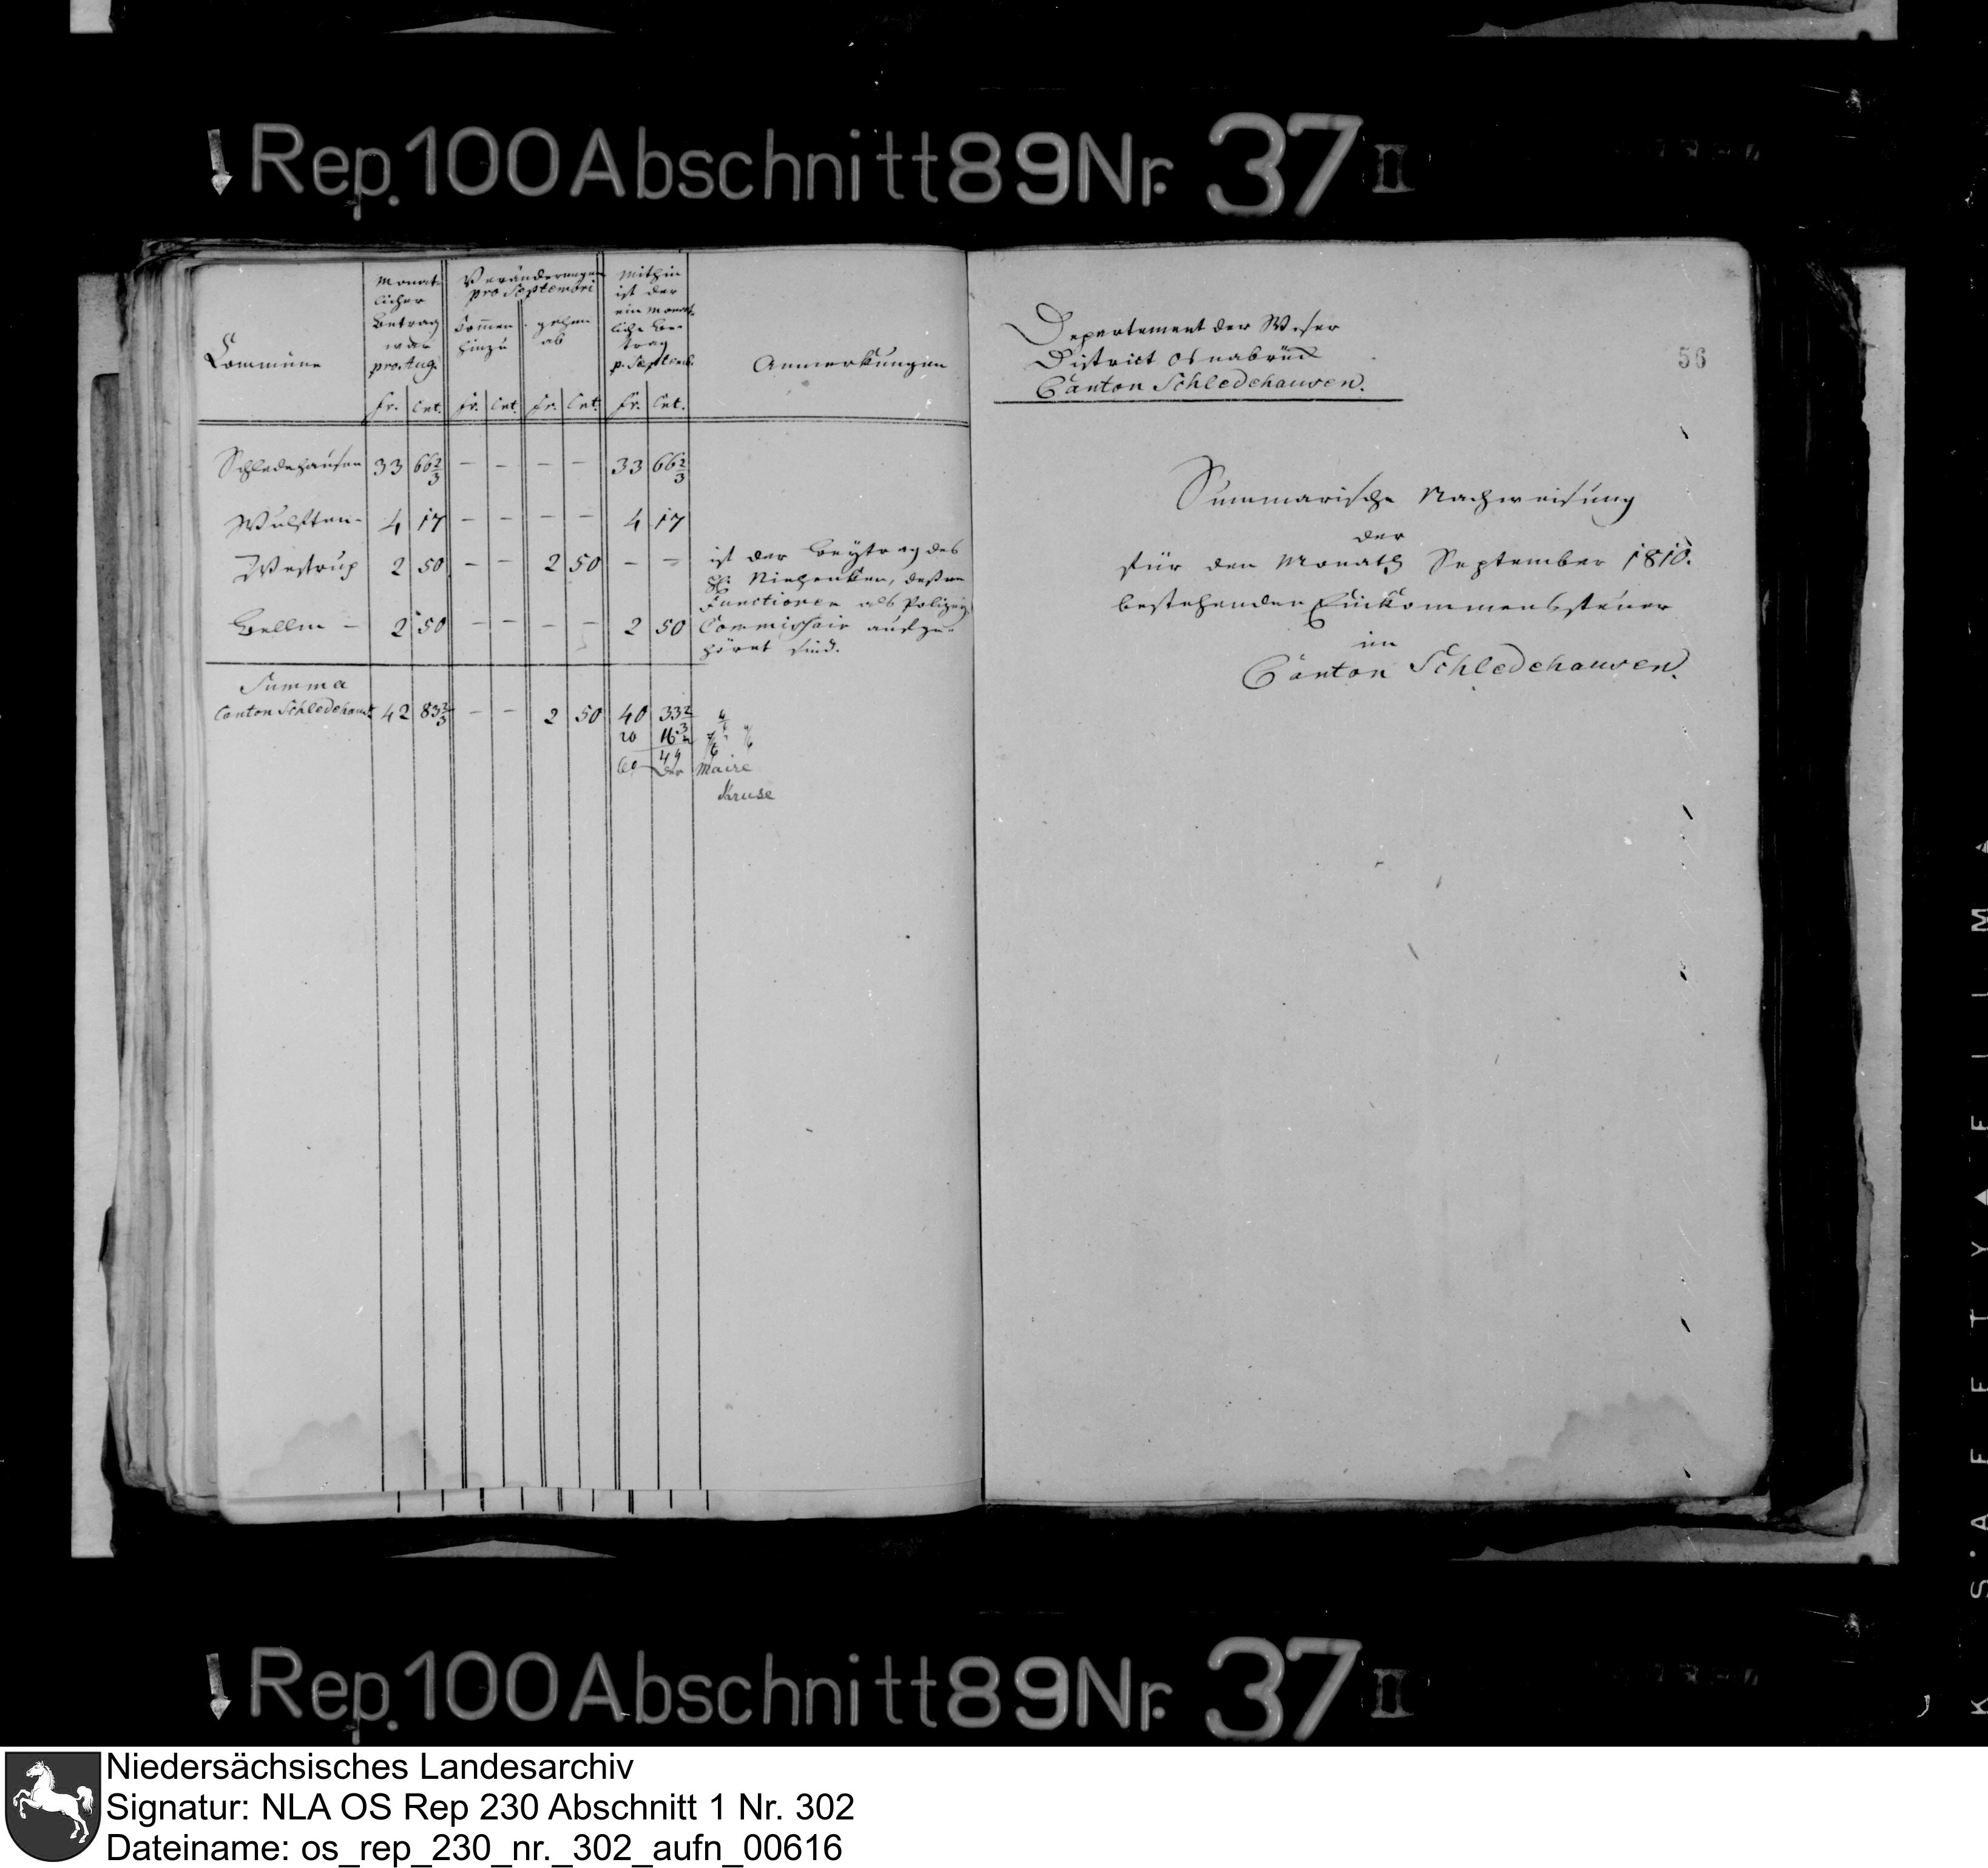 Rep. 100 Abschnitt 89 Nr. 37 II
Commune
Monat-
licher
Betrag
war
pro Aug.
Veränderungen
pro Septembri
kommen
hinzu
gehen
ab
Mithin
ist der
ein Monat-
liche Be-
trag
p. Septemb.
Anmerkungen
fr. Cet. fr. Cet. fr. Cet. fr. Cet.
Schledehausen 33 66 2/3 – – – – 33 66 2/3
Wulften – 4 17 – – – – 4 17
Westrup 2 50 – – 2 50 – –
ist der Beytrag des
H. Niehenken, deßen
Functionen als Polizey
Commissair aufge-
höret sind.
Bellm – 2 50 – – – – 2 50
Summa
Canton Schledehaus. 42 83 2/3 – – 2 50 40 33 2/3
20 16
60 49
der Maire
Kruse
Departement der Weser
District Osnabrück
Canton Schledehausen.
56
Summarische Nachweisung
der
für den Monath September 1810.
bestehenden Einkommenssteuer
im
Canton Schledehausen.
Rep. 100 Abschnitt 89 Nr. 37 II
K S·A F E T Y ▲ F I L M ▲
Niedersächsisches Landesarchiv
Signatur: NLA OS Rep 230 Abschnitt 1 Nr. 302
Dateiname: os_rep_230_nr._302_aufn_00616